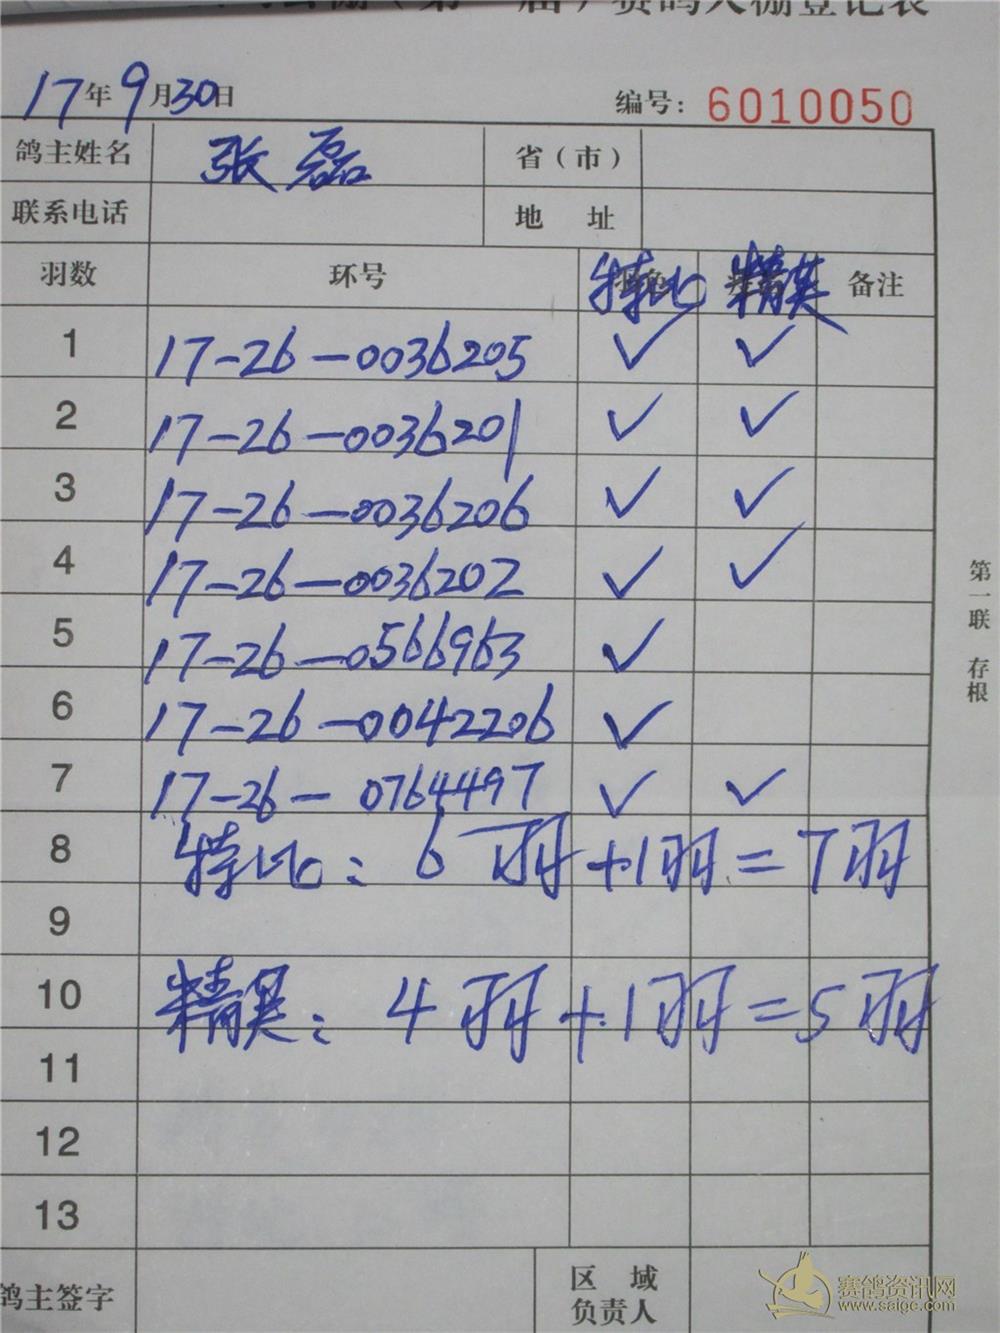 赛鸽入棚登记表
17年9月30日 编号：6010050
鸽主姓名 张磊 省（市）
联系电话 地 址
羽数 环号 特比 精英 备注
1 17-26-0036205 ✓ ✓
2 17-26-0036201 ✓ ✓
3 17-26-0036206 ✓ ✓
4 17-26-0036202 ✓ ✓
5 17-26-0566963 ✓
6 17-26-0042206 ✓
7 17-26-0764497 ✓ ✓
8 特比：6羽+1羽=7羽
9
10 精英：4羽+1羽=5羽
11
12
13
鸽主签字 区 域
负责人
第一联 存根
赛鸽资讯网
www.saigc.com